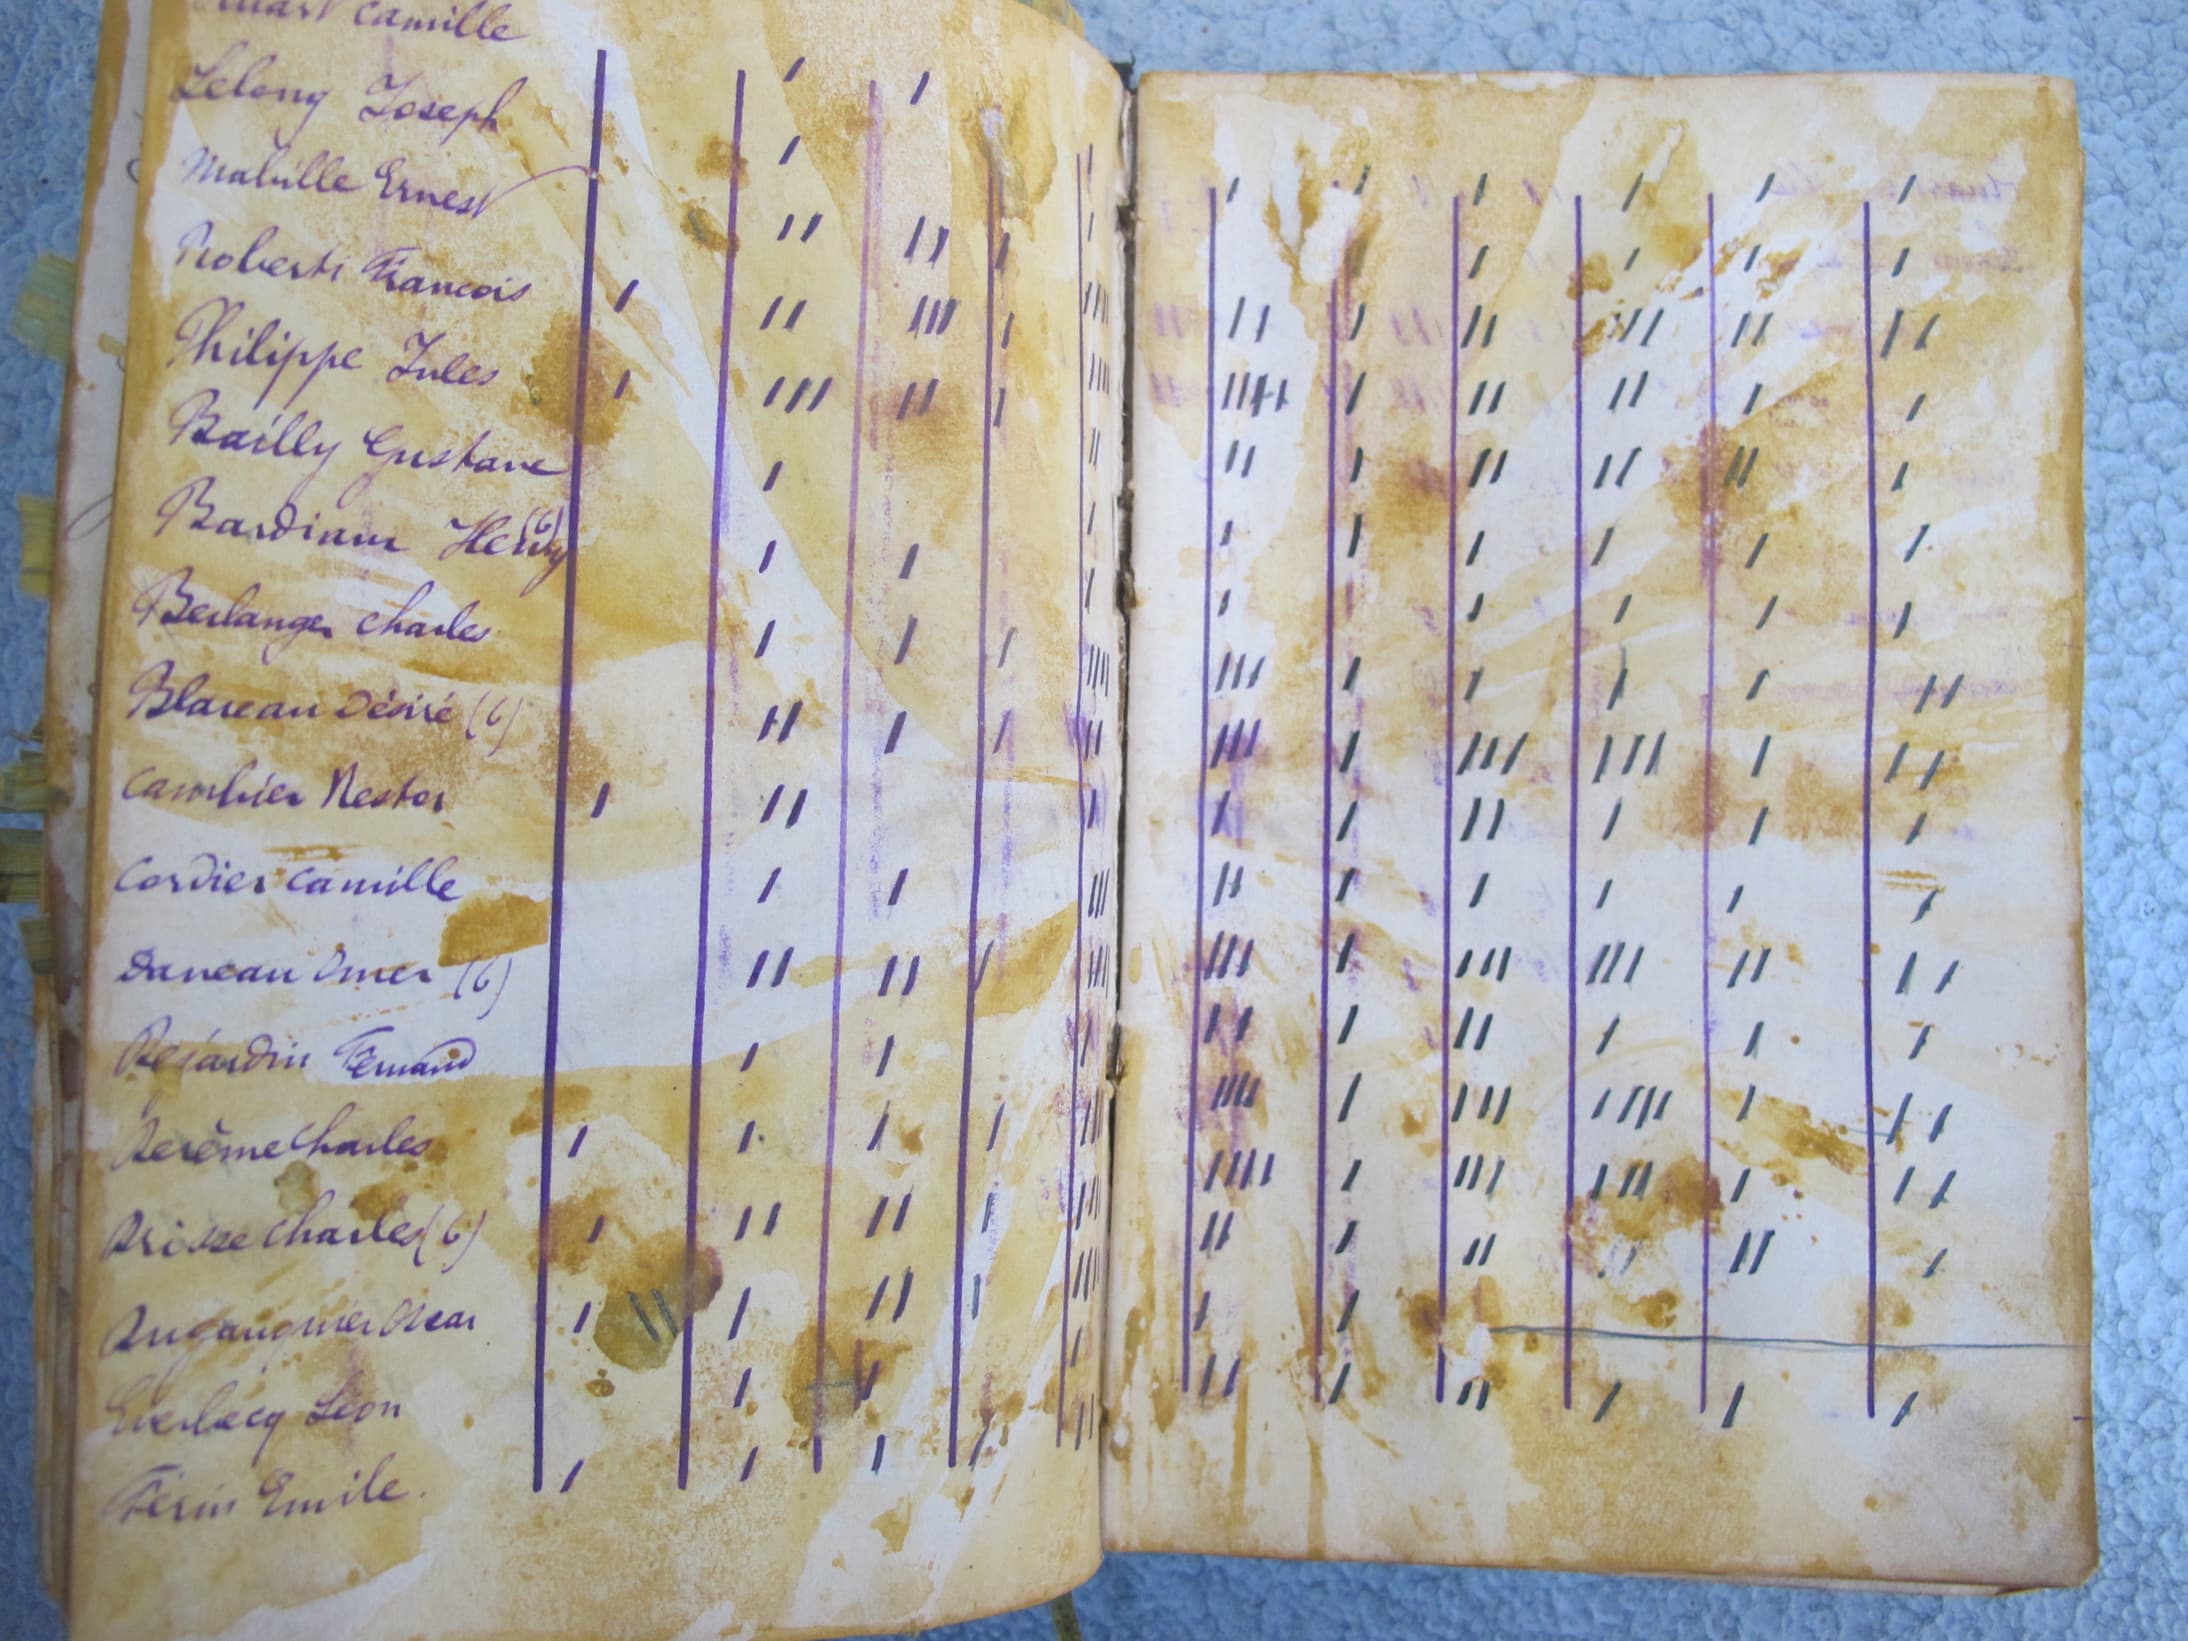 camille
Lelong Joseph
Malville Ernest
Roberti Francois
Philippe Jules
Bailly Gustave
Bardiaux Henry (6)
Berlanger charles
Blareau Désiré (6)
cambier Nestor
cordier camille
Daneau Omer (6)
Dejardin Fernand
Derème Charles
Brisse charles (6)
Oscar
Everlecq Léon
Firin Emile.